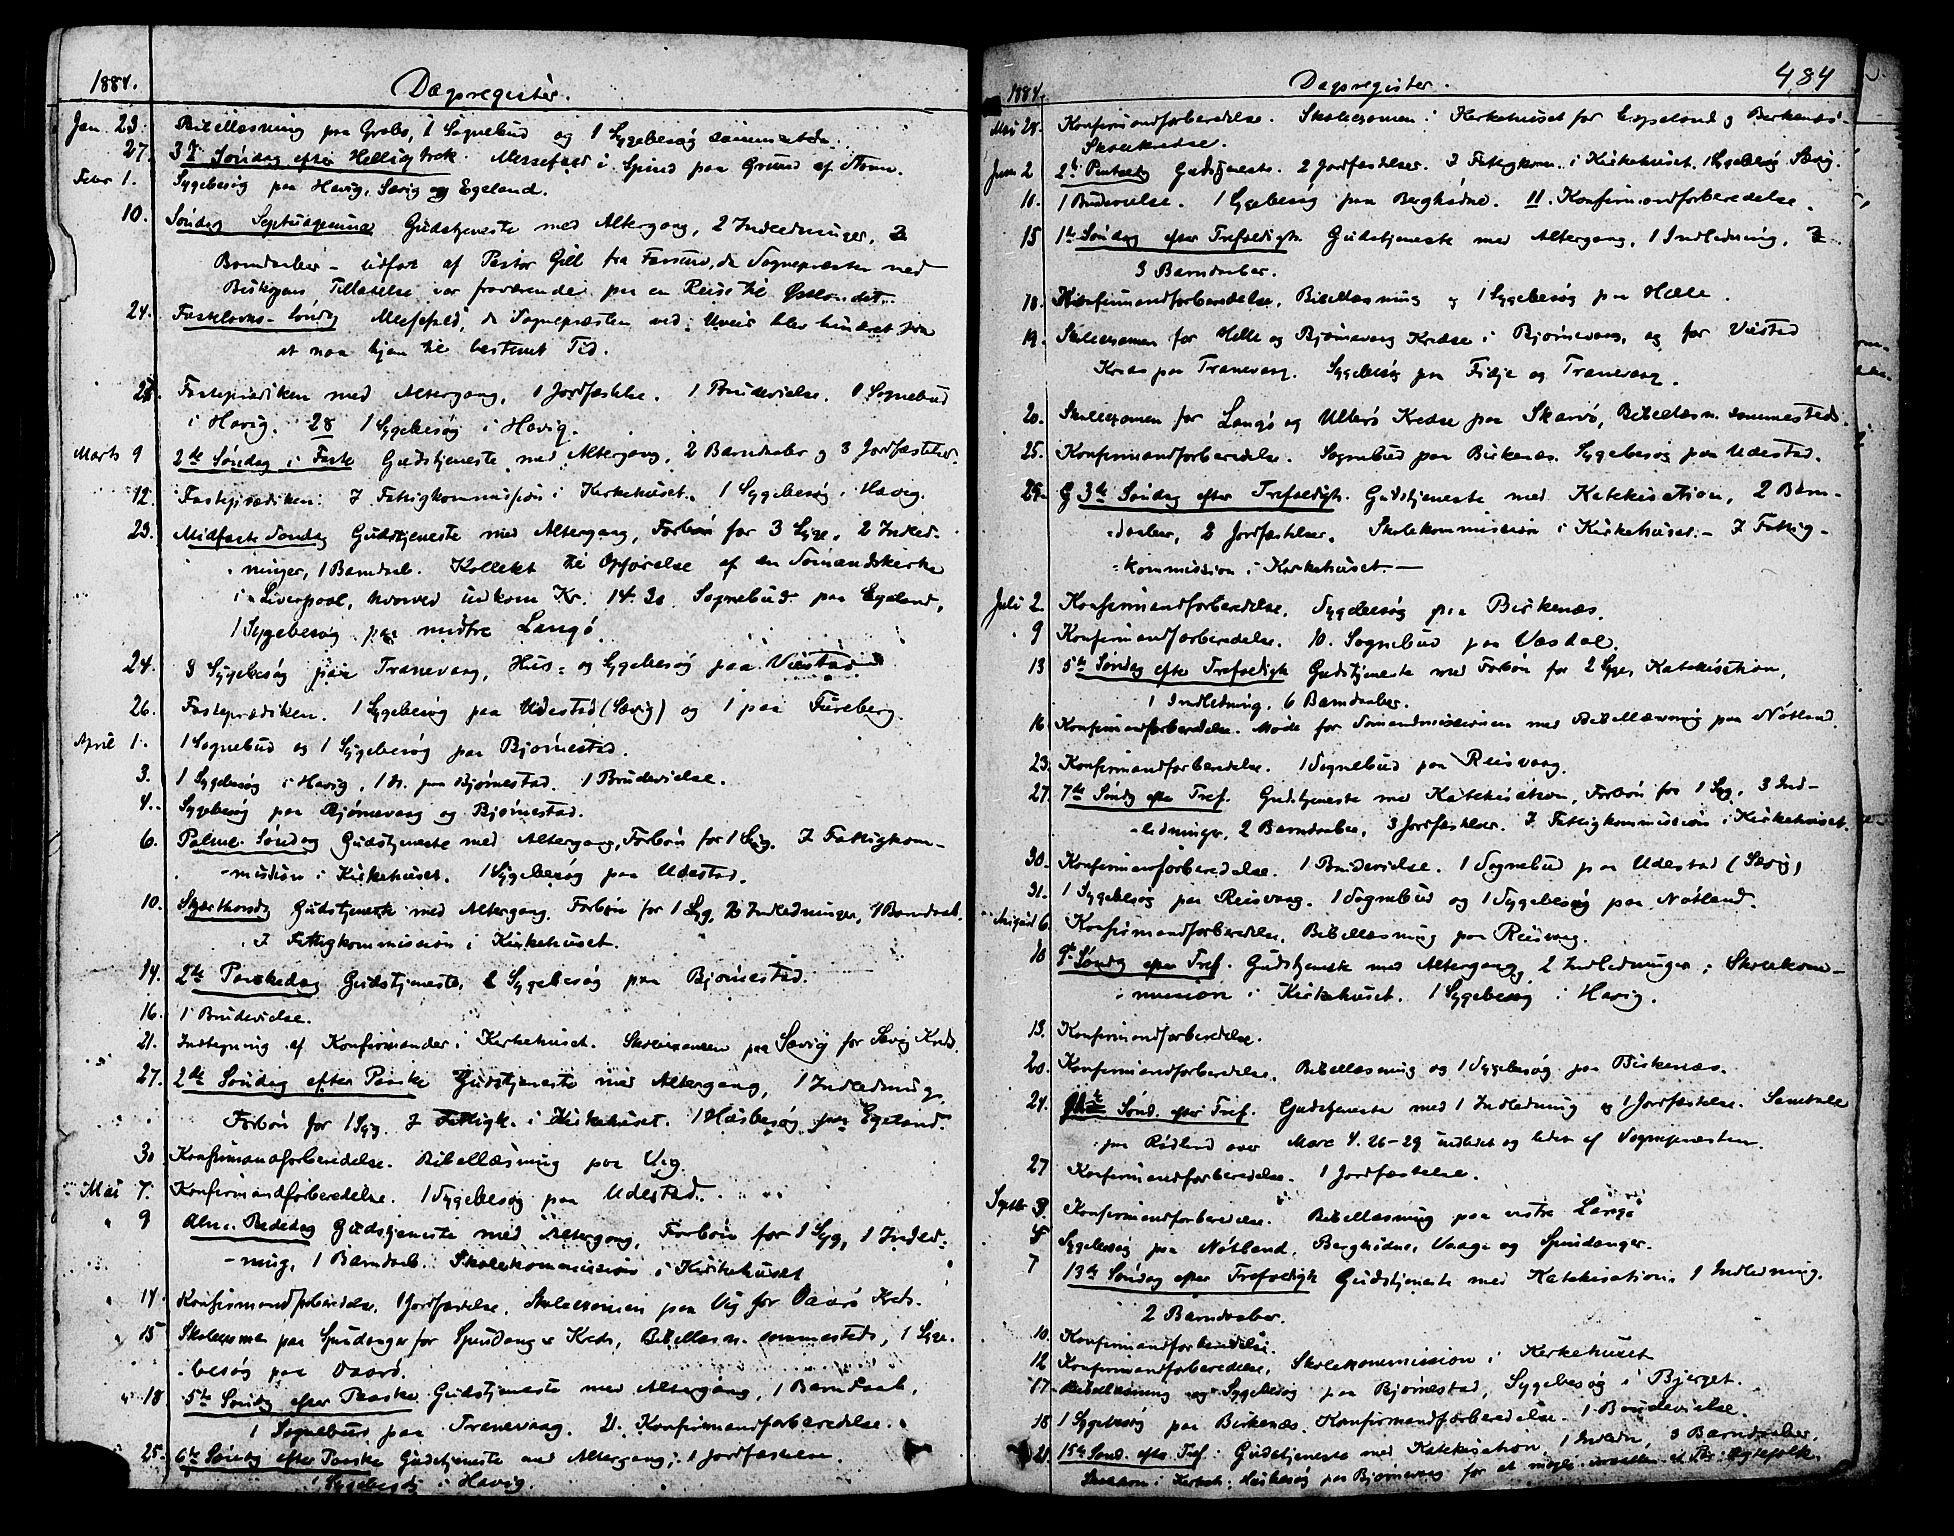 1884.
Dagsregister.
Jan. 23. Bibellæsning paa Grobs, 1 Sognebud og 1 Sygebesøg sammesteds.
27. 3die Søndag efter Helligtrek. Messefald i Spind paa Grund af Storm.
Febr 1. Sygebesøg paa Havig, Sævig og Egeland.
10. Søndag Septuagesima Gudstjeneste med Altergang, 2 Indledninger, 2
Barndaaber – udført af Pastor Gill fra Farsund, da Sognepræsten med
Biskopens Tilladelse var fraværende paa en Reise til Østlandet.
24. Fastelavns-Søndag Messefald, da Sognepræsten ved Uveir blev hindret fra
at naa hjem til bestemt Tid.
Fasteprædiken med Altergang, 1 Jordfæstelse. 1 Brudevielse. 1 Sognebud
i Havig. 28 1 Sygebesøg i Havig.
Marts 9 2de Søndag i Faste Gudstjeneste med Altergang, 2 Barndaaber og 3 Jordfæstelser.
12. Fasteprædiken. 7 Fattigkommission i Kirkehuset. 1 Sygebesøg i Havig.
23. Midfaste Søndag Gudstjeneste med Altergang, Forbøn for 3 Syge, 2 Indled-
ninger, 1 Barndaab. Kollekt til Opførelse af en Sømandskirke
i Liverpool, hvorved indkom Kr. 14.30 Sognebud paa Egeland,
1 Sygebesøg paa midtre Langø.
24. 3 Sygebesøg paa Tranevaag, Hus- og Sygebesøg paa Viestad
26. Fasteprædiken. 1 Sygebesøg paa Udestad (Sævig) og 1 paa Fureberg.
April 1. 1 Sognebud og 1 Sygebesøg paa Bjørnestad.
3. 1 Sygebesøg i Havig, 1 paa Bjørnestad. 1 Brudevielse.
4. Sygebesøg paa Bjørnevaag og Bjørnestad.
6. Palme-Søndag Gudstjeneste med Altergang, Forbøn for 1 Syg. 7 Fattigkom-
mission i Kirkehuset. 1 Sygebesøg paa Udestad.
10. Skjærthorsdag Gudstjeneste med Altergang. Forbøn for 1 Syg, Indledninger, 1 Barndaab.
7 Fattigkommission i Kirkehuset.
14. 2den Paaskedag Gudstjeneste, 2 Sygebesøg paa Bjørnestad.
16. 1 Brudevielse.
21. Indtegning af Konfirmander i Kirkehuset. Skoleexamen paa Sævig for Sævig Kreds.
27. 2den Søndag efter Paaske Gudstjeneste med Altergang, 1 Indledning
Forbøn for 1 Syg. 7 Fattigk. i Kirkehuset. 1 Husbesøg paa Egeland.
30 Konfirmandforberedelse. Bibellæsning paa Vig.
Mai 7. Konfirmandforberedelse. 1 Sygebesøg paa Udestad.
9 Alm. Bededag Gudstjeneste med Altergang, Forbøn for 1 Syg, 1 Indled-
ning, 1 Barndaab. Skolekommission i Kirkehuset
14. Konfirmandforberedelse, 1 Jordfæstelse. Skoleexamen paa Vig for Daarø Kreds.
15 Skoleexamen paa Spindanger for Spindanger Kreds, Bibellæsn. sammesteds, 1 Syge-
besøg paa Daarø.
18 5te Søndag efter Paaske Gudstjeneste med Altergang, 1 Barndaab,
1 Sognebud paa Tranevaag. 21. Konfirmandforberedelse.
25. 6te Søndag efter Paaske Gudstjeneste med Altergang, 1 Jordfæstelse.
1 Sygebesøg i Havig.
1884.
Dagsregister.
484
Mai 28. Konfirmandforberedelse. Skoleexamen i Kirkehuset for og Birkenæs
Skolekredse.
Juni 2 2den Pintsedag Gudstjeneste. 2 Jordfæstelser. 7 Fattigkom. i Kirkehuset. 1 Sygebesøg Sævig.
11. 1 Brudevielse. 1 Sygebesøg paa Berghødne. 11. Konfirmandforberedelse.
15 1ste Søndag efter Trefoldigh. Gudstjeneste med Altergang, 1 Indledning,
3 Barndaaber.
18. Konfirmandforberedelse, Bibellæsning og 1 Sygebesøg paa Helle.
19. Skoleexamen for Helle og Bjørnevaag Kredse i Bjørnevaag, og for Viestad
Kreds paa Tranevaag. Sygebesøg paa Fidje og Tranevaag.
20. Skoleexamen for Langø og Ullerø Kredse paa Skarvø, Bibellæsn. sammesteds.
25. Konfirmandforberedelse. Sognebud paa Birkenæs. Sygebesøg paa Udestad.
29. 3die Søndag efter Trefoldigh. Gudstjeneste med Katekisation, 2 Barn-
daaber, 2 Jordfæstelser. Skolekommission i Kirkehuset. – 7 Fattig-
kommission i Kirkehuset. –
Juli 2. Konfirmandforberedelse. Sygebesøg paa Birkenæs.
9 Konfirmandforberedelse. 10. Sognebud paa Vasdal.
13 5te Søndag efter Trefoldigh Gudstjeneste med Forbøn for 2 Syge, Katekisation,
1 Indledning, 6 Barndaaber.
16 Konfirmandforberedelse. Møde for Sømandsmissionen med Bibellæsning paa Nøtland.
23. Konfirmandforberedelse. 1 Sognebud paa Reisvaag.
27. 7de Søndag efter Tref. Gudstjeneste med Katekisation, Forbøn for 1 Syg, 3 Ind-
ledninger, 2 Barndaaber, 3 Jordfæstelser. 7 Fattigkommission i Kirkehuset.
30. Konfirmandforberedelse. 1 Brudevielse. 1 Sognebud paa Udestad (Sævig)
31. 1 Sygebesøg paa Reisvaag. 1 Sognebud og 1 Sygebesøg paa Nøtland.
August 6. Konfirmandforberedelse, Bibellæsning paa Reisvaag.
10 9de Søndag efter Tref. Gudstjeneste med Altergang, 2 Indledninger, Skolekom-
mission i Kirkehuset. 1 Sygebesøg i Havig.
13. Konfirmandforberedelse.
20. Konfirmandforberedelse. Bibellæsning og 1 Sygebesøg paa Birkenæs.
24. Sønd. efter Tref. Gudstjeneste med 1 Indledning og 1 Jordfæstelse. Samtale
paa Rødland over Marc 4. 26-29 indledet og ledet af Sognepræsten.
27 Konfirmandforberedelse. 1 Jordfæstelse.
Septbr 3. Konfirmandforberedelse. Bibellæsning paa vestre Langø
Sygebesøg paa Nøtland, Berghødne, Vaage og Spindanger.
7 13de Søndag efter Trefoldigh Gudstjeneste med Katekisation, 1 Indledning.
2 Barndaaber.
10. Konfirmandforberedelse.
12 Konfirmandforberedelse, Skolekommission i Kirkehuset
17. Bibellæsning og Sygebesøg paa Bjørnestad, Sygebesøg i Bjerget.
18 1 Sygebesøg paa Birkenæs. Konfirmandforberedelse. 1 Brudevielse.
21 15de Sønd. efter Tref. Gudstjeneste med Katekisation, 1 Indledn, 3 Barndaaber.
i Kirkeh. Husbesøg paa Bjørnevaag for at mægle imellem et Par Ægtefolk.